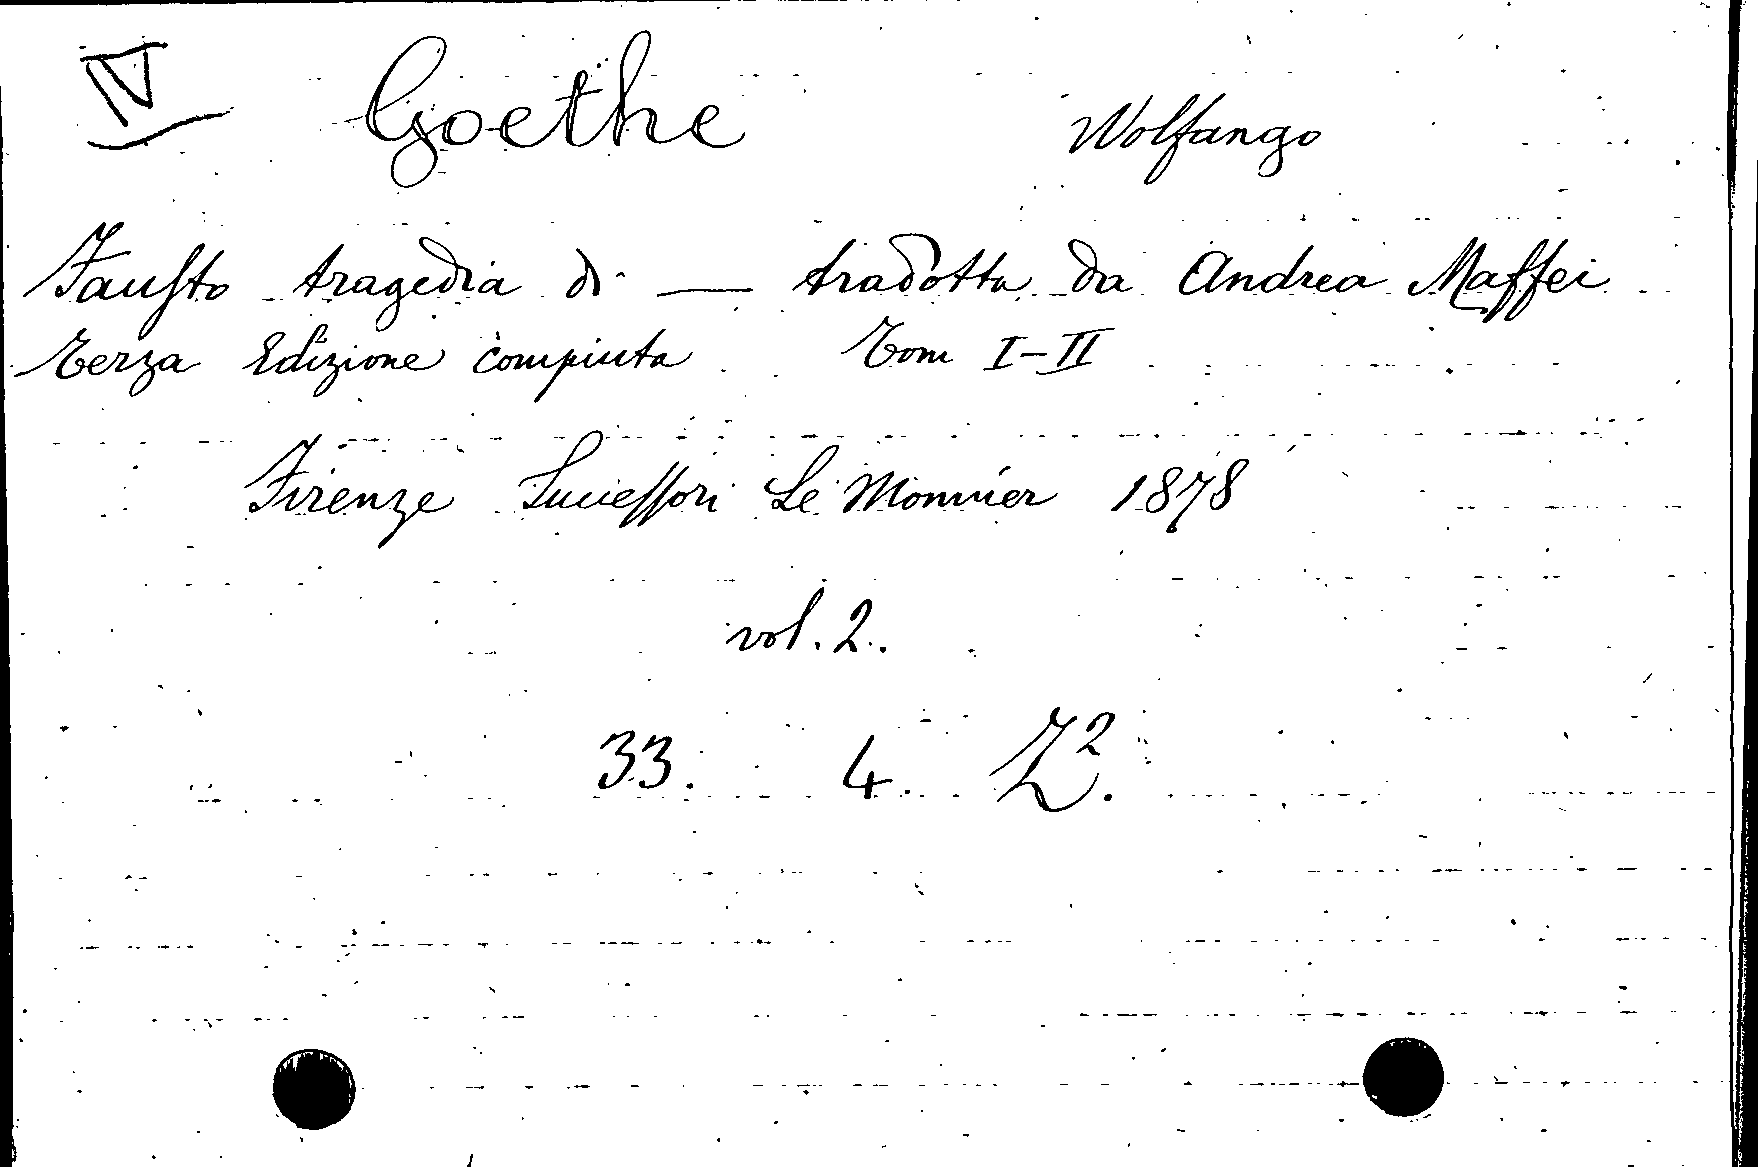 IV Goethe Wolfango
Fausto tragedia di — tradotta da Andrea Maffei
Terza Edizione compiuta Tom I-II
Firenze Successori Le Monnier 1878
vol. 2.
33. 4. Z².